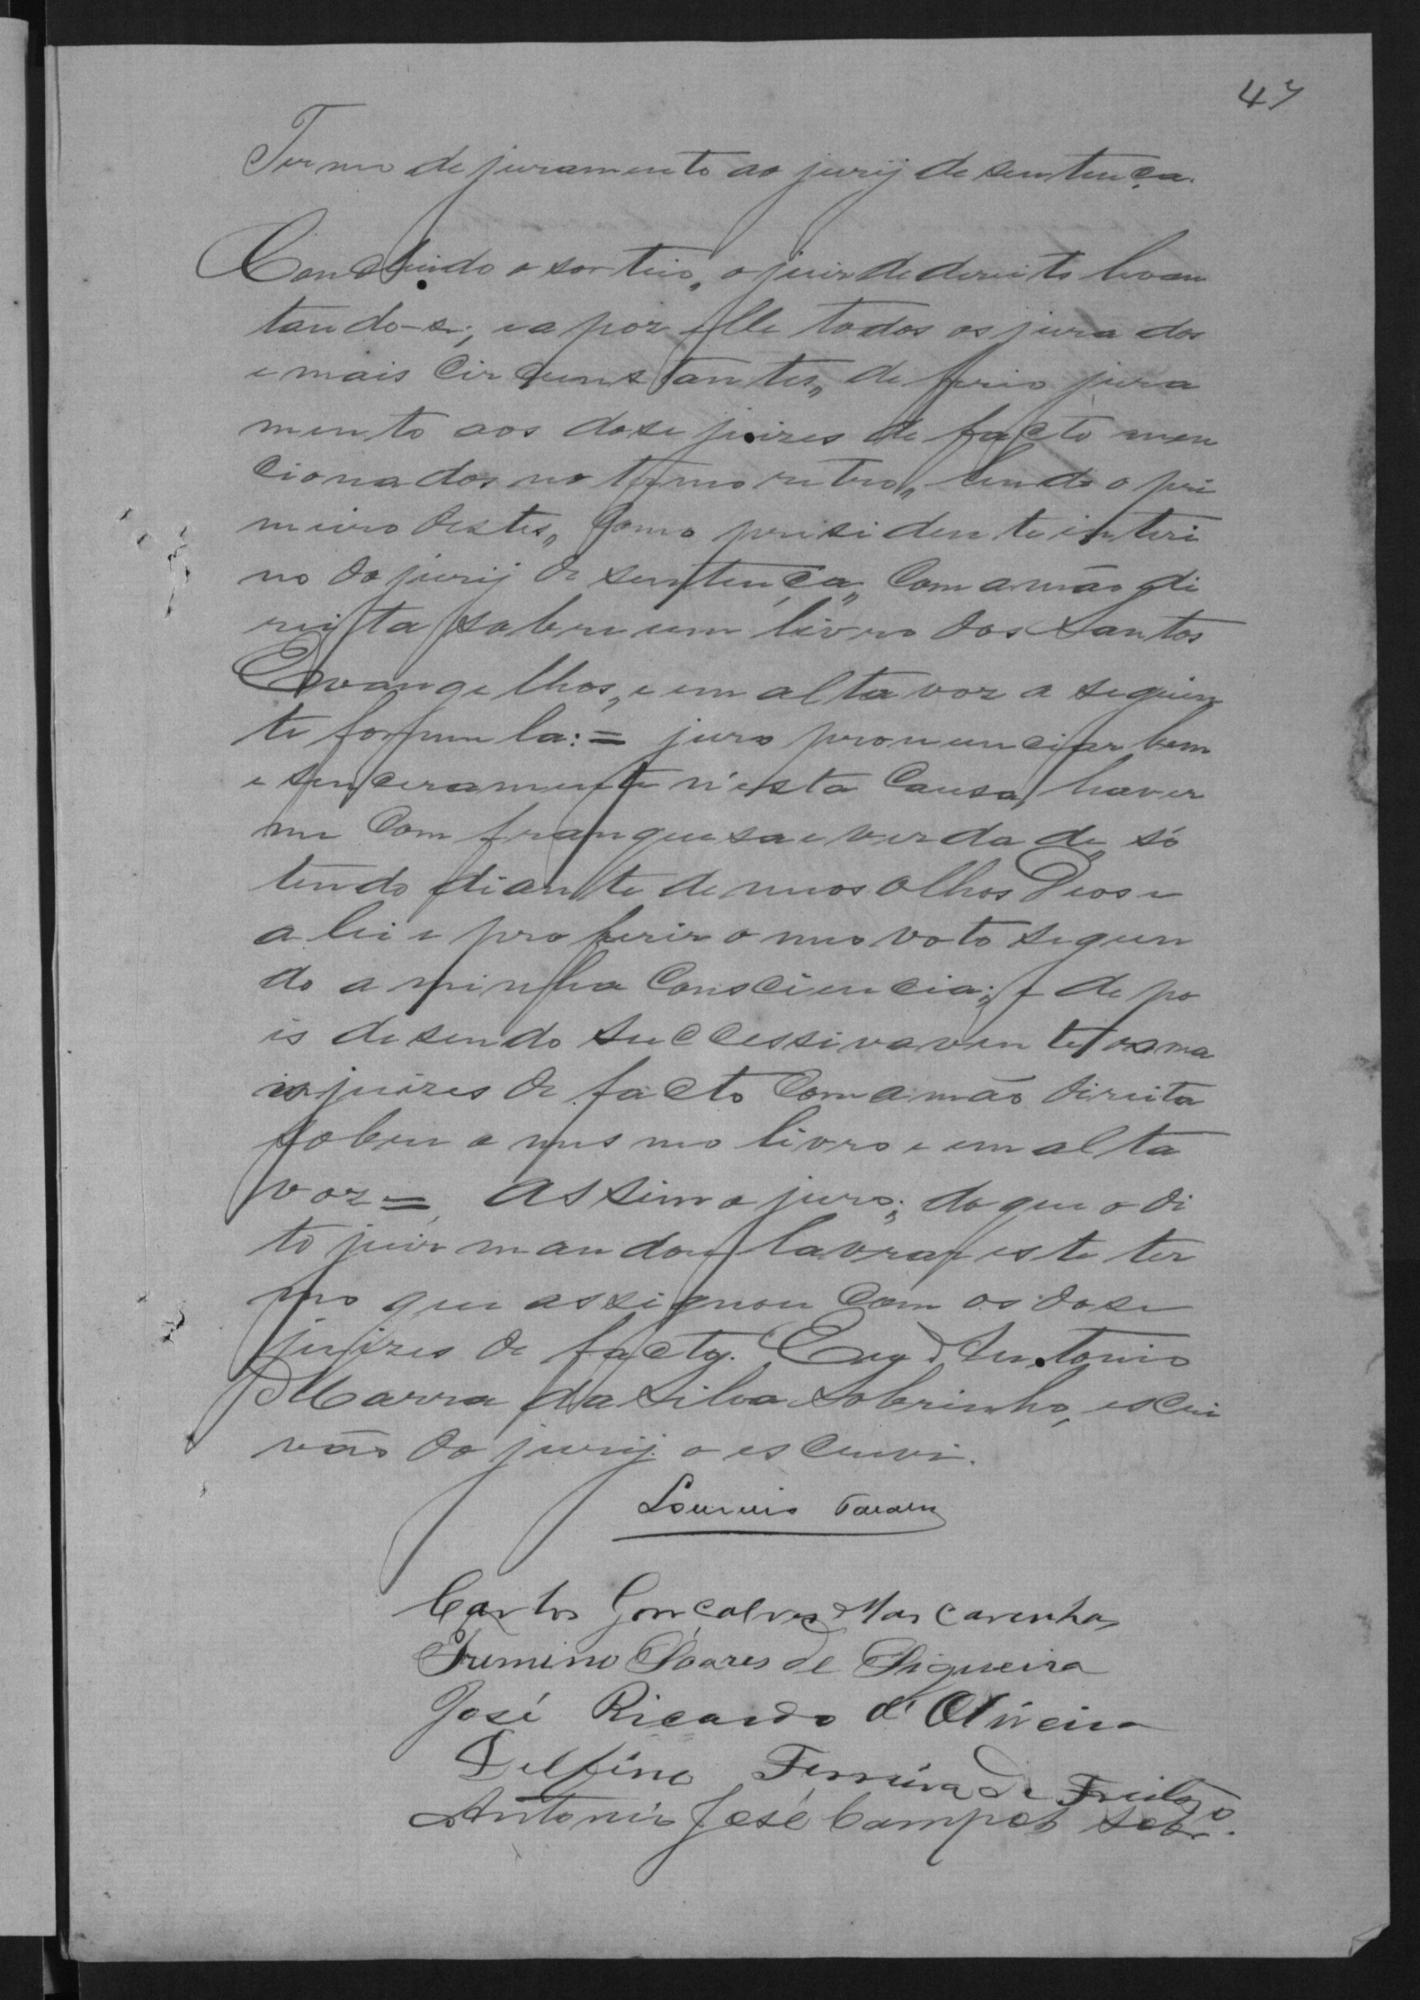 47
Termo de juramento ao jury de sentença.
Concluido o sorteio, o juiz de direito levan
tando-se, e apoz elle todos os jurados
e mais circunstantes, deferio jura
mento aos dose juizes de facto men
cionados no termo retro, lendo o pri
meiro destes, como presidente interi
no do jury de sentença, com a mão di
reita sobre um livro dos Santos
Evangelhos, e em alta voz a seguin
te formula: = juro pronunciar bem
e sinceramente n'esta causa, haver
me com franquesa e verdade, só
tendo diante de meos olhos Deos e
a lei e proferir o meo voto segun
do a minha consciencia; e depo
is desendo successivamente os ma
is juizes de facto com a mão direita
sobre o mesmo livro e em alta
voz = assim o juro; do que o di
to juiz mandou lavrar este ter
mo que assignou com os dose
juizes de facto. Eu, Antonio
Marra da Silva Sobrinho, escri
vão do jury o escrevi.
Carlos Gonçalves Mascarenhas
Firmino Soares de Siqueira
José Ricardo d'Oliveira
Delfino Ferreira de Freitas
Antonio José Campos Sobr.º